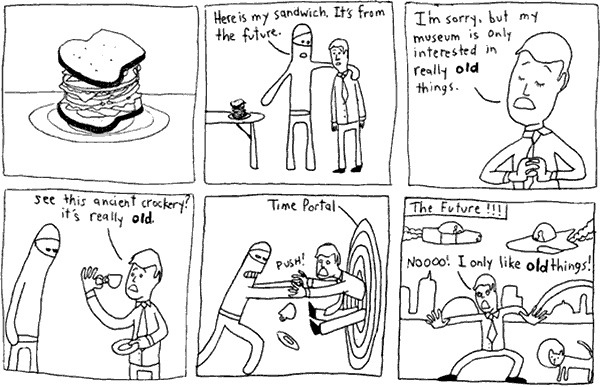 Here is my sandwich. It's from
the future.
I'm sorry, but my
museum is only
interested in
really old
things.
see this ancient crockery?
it's really old.
Time Portal
PUSH!
The Future!!!
NOOOO! I only like old things!